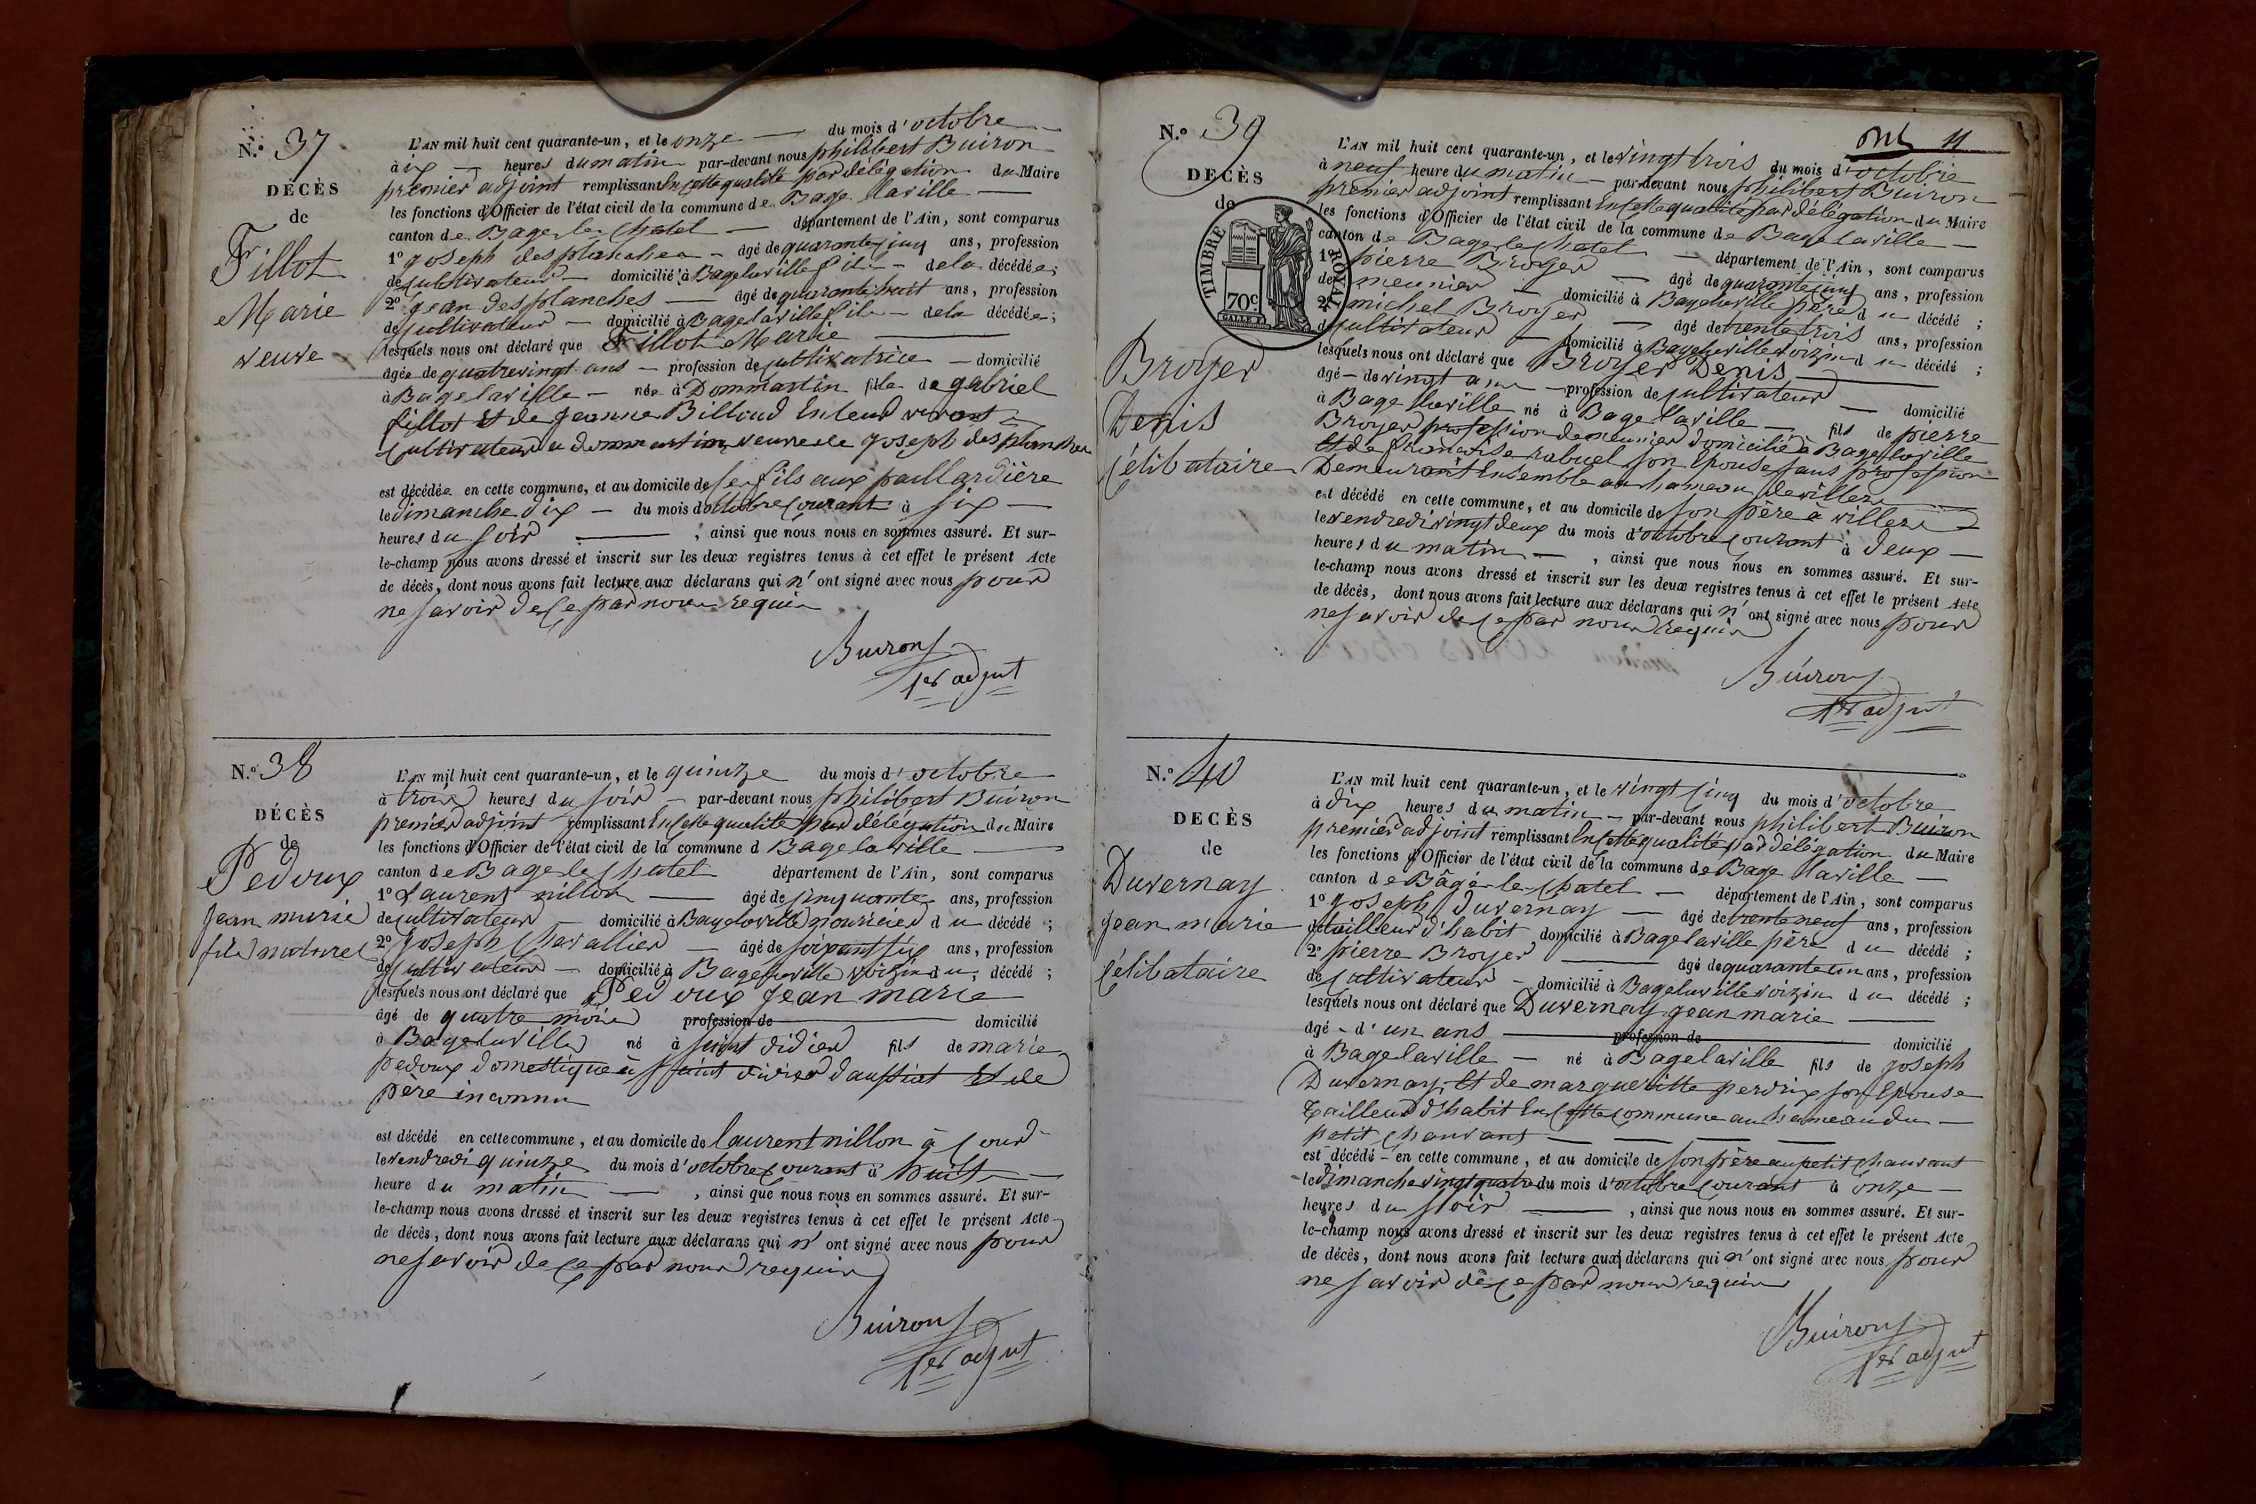 N.º 37
DÉCÈS
de
Fillot
Marie
veuve
L'AN mil huit cent quarante-un, et le onze du mois d'octobre
à ix heures du matin par-devant nous philibert Buiron
premier adjoint remplissant en cette qualité par délégation du Maire
les fonctions d'Officier de l'état civil de la commune de Bage laville
canton de Bage le Chatel département de l'Ain, sont comparus
1º joseph desplanches âgé de quarante cinq ans, profession
de cultivateur domicilié à Bagelaville fils de la décédée;
2º jean desplanches âgé de quarante huit ans, profession
de cultivateur domicilié à Bagelaville fils de la décédée;
lesquels nous ont déclaré que Fillot Marie
âgée de quatrevingt ans profession de cultivatrice domicilié
à Bagelaville née à Dommartin fille de gabriel
fillot Et de jeanne Billoud En leur vivant
cultivateurs a dommartin veuve de joseph desplanches
est décédée en cette commune, et au domicile de ses fils aux paillardière
le dimanche dix du mois d'octobre courant à six
heures du soir ; ainsi que nous nous en sommes assuré. Et sur-
le-champ nous avons dressé et inscrit sur les deux registres tenus à cet effet le présent Acte
de décès, dont nous avons fait lecture aux déclarans qui n'ont signé avec nous pour
ne savoir de ce par nous requis
Buiron
1er adjnt
N.º 38
DÉCÈS
de
Pedoux
jean marie
fils naturel
L'AN mil huit cent quarante-un, et le quinze du mois d'octobre
à trois heures du soir par-devant nous philibert Buiron
premier adjoint remplissant En cette qualité par délégation du Maire
les fonctions d'Officier de l'état civil de la commune d Bagelaville
canton de Bage le Chatel département de l'Ain, sont comparus
1º Laurent nillon âgé de cinquante ans, profession
de cultivateur domicilié à Bagelaville nouricier du décédé;
2º joseph Chavallier âgé de soixant six ans, profession
de cultivateur domicilié à Bagelaville voizin du décédé;
lesquels nous ont déclaré que Pedoux jean marie
âgé de quatre mois profession de domicilié
à Bagelaville né à saint didier fils de marie
pedoux domestique à saint didier d'aussiat Et de
père inconnu
est décédé en cette commune, et au domicile de laurent nillon à Cour
le vendredi quinze du mois d'octobre courant à huit
heure du matin, ainsi que nous nous en sommes assuré. Et sur-
le-champ nous avons dressé et inscrit sur les deux registres tenus à cet effet le présent Acte
de décès, dont nous avons fait lecture aux déclarans qui n'ont signé avec nous pour
ne savoir de ce par nous requis
Buiron
1er adjnt
onz 11
N.º 39
DÉCÈS
de
TIMBRE ROYAL
70c
Broyer
Denis
Célibataire
L'AN mil huit cent quarante-un, et le vingt trois du mois d'octobre
à neuf heure du matin par-devant nous philibert Buiron
premier adjoint remplissant En cette qualité par délégation du Maire
les fonctions d'Officier de l'état civil de la commune de Bage laville
canton de Bage le Chatel département de l'Ain, sont comparus
1º pierre Broyer âgé de quarante cinq ans, profession
de meunier domicilié à Bagelaville père du décédé;
2º michel Broyer âgé de trente trois ans, profession
de cultivateur domicilié à Bagelaville voizin du décédé;
lesquels nous ont déclaré que Broyer Denis
âgé de vingt ans profession de cultivateur domicilié
à Bage laville né à Bage laville fils de pierre
Broyer profession de meunier domicilié à Bage laville
Et de françoise rabuel son Epouse sans profession
Demeurant Ensemble au hameau de villers
est décédé en cette commune, et au domicile de son père à villers
le vendredi vingt deux du mois d'octobre courant à deux
heures du matin, ainsi que nous nous en sommes assuré. Et sur-
le-champ nous avons dressé et inscrit sur les deux registres tenus à cet effet le présent Acte
de décès, dont nous avons fait lecture aux déclarans qui n'ont signé avec nous pour
ne savoir de ce par nous requis
Buiron
1er adjnt
N.º 40
DÉCÈS
de
Duvernay
jean marie
Célibataire
L'AN mil huit cent quarante-un, et le vingt cinq du mois d'octobre
à dix heures du matin par-devant nous philibert Buiron
premier adjoint remplissant En cette qualité par délégation du Maire
les fonctions d'Officier de l'état civil de la commune de Bage laville
canton de Bâgé le Chatel département de l'Ain, sont comparus
1º joseph duvernay âgé de trente neuf ans, profession
de tailleur d'habit domicilié à Bagelaville père du décédé;
2º pierre Broyer âgé de quarante un ans, profession
de Cultivateur domicilié à Bagelaville voizin du décédé;
lesquels nous ont déclaré que Duvernay jean marie
âgé d'un ans profession de domicilié
à Bagelaville né à Bagelaville fils de joseph
Duvernay Et de margueritte perdrix son Epouse
Tailleur d'habit En cette commune au hameau du
petit Chanvant
est décédé en cette commune, et au domicile de son père au petit Chanvant
le dimanche vingt quatre du mois d'octobre courant à onze
heures du soir, ainsi que nous nous en sommes assuré. Et sur-
le-champ nous avons dressé et inscrit sur les deux registres tenus à cet effet le présent Acte
de décès, dont nous avons fait lecture aux déclarans qui n'ont signé avec nous pour
ne savoir de ce par nous requis
Buiron
1er adjnt